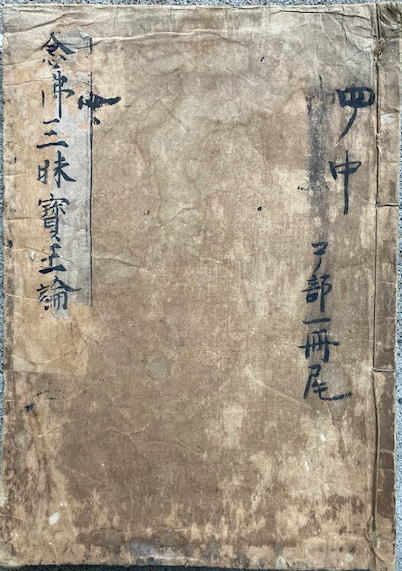 四中
了部一冊尾
念佛三昧寶王論